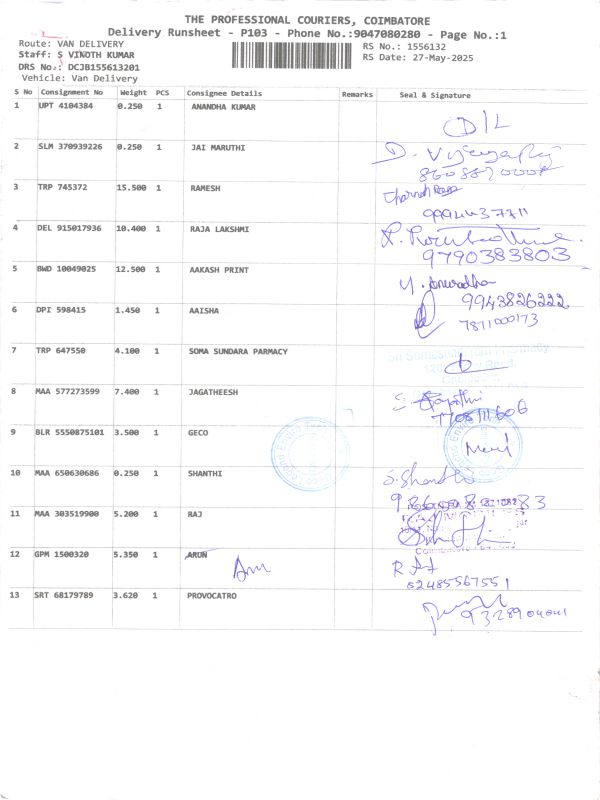 THE PROFESSIONAL COURIERS, COIMBATORE
Delivery Runsheet - P103 - Phone No.:9047080280 - Page No.:1
Route: VAN DELIVERY
RS No.: 1556132
Staff: S VINOTH KUMAR
RS Date: 27-May-2025
DRS No.: DCJB155613201
Vehicle: Van Delivery
S No Consignment No Weight PCS Consignee Details Remarks Seal & Signature
1 UPT 4104384 0.250 1 ANANDHA KUMAR
2 SLM 370939226 0.250 1 JAI MARUTHI
3 TRP 745372 15.500 1 RAMESH
4 DEL 915017936 10.400 1 RAJA LAKSHMI
9790383803
5 BWD 10049025 12.500 1 AAKASH PRINT
9943826222
6 DPI 598415 1.450 1 AAISHA
7871000173
7 TRP 647550 4.100 1 SOMA SUNDARA PARMACY
8 MAA 577273599 7.400 1 JAGATHEESH
9 BLR 5550875101 3.500 1 GECO
10 MAA 650630686 0.250 1 SHANTHI
11 MAA 303519900 5.200 1 RAJ
12 GPM 1500320 5.350 1 ARUN
13 SRT 68179789 3.620 1 PROVOCATRO